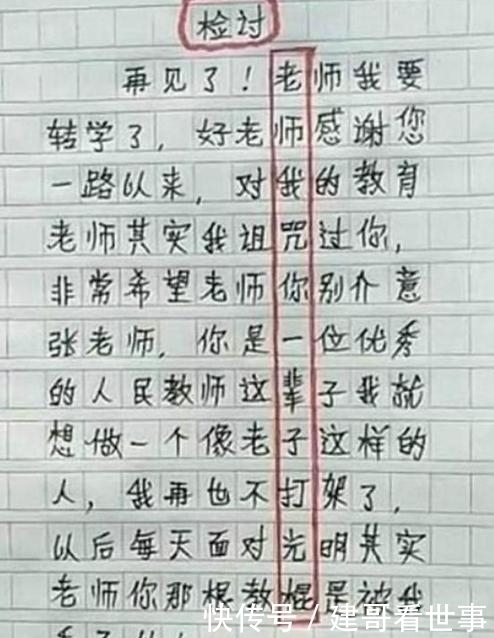 检讨
再见了！老师我要
转学了，好老师感谢您
一路以来，对我的教育
老师其实我诅咒过你，
非常希望老师你别介意
张老师，你是一位优秀
的人民教师这辈子我就
想做一个像老子这样的
人，我再也不打架了，
以后每天面对光明其实
老师你那根教棍是被我
快传号 / 建哥看世事